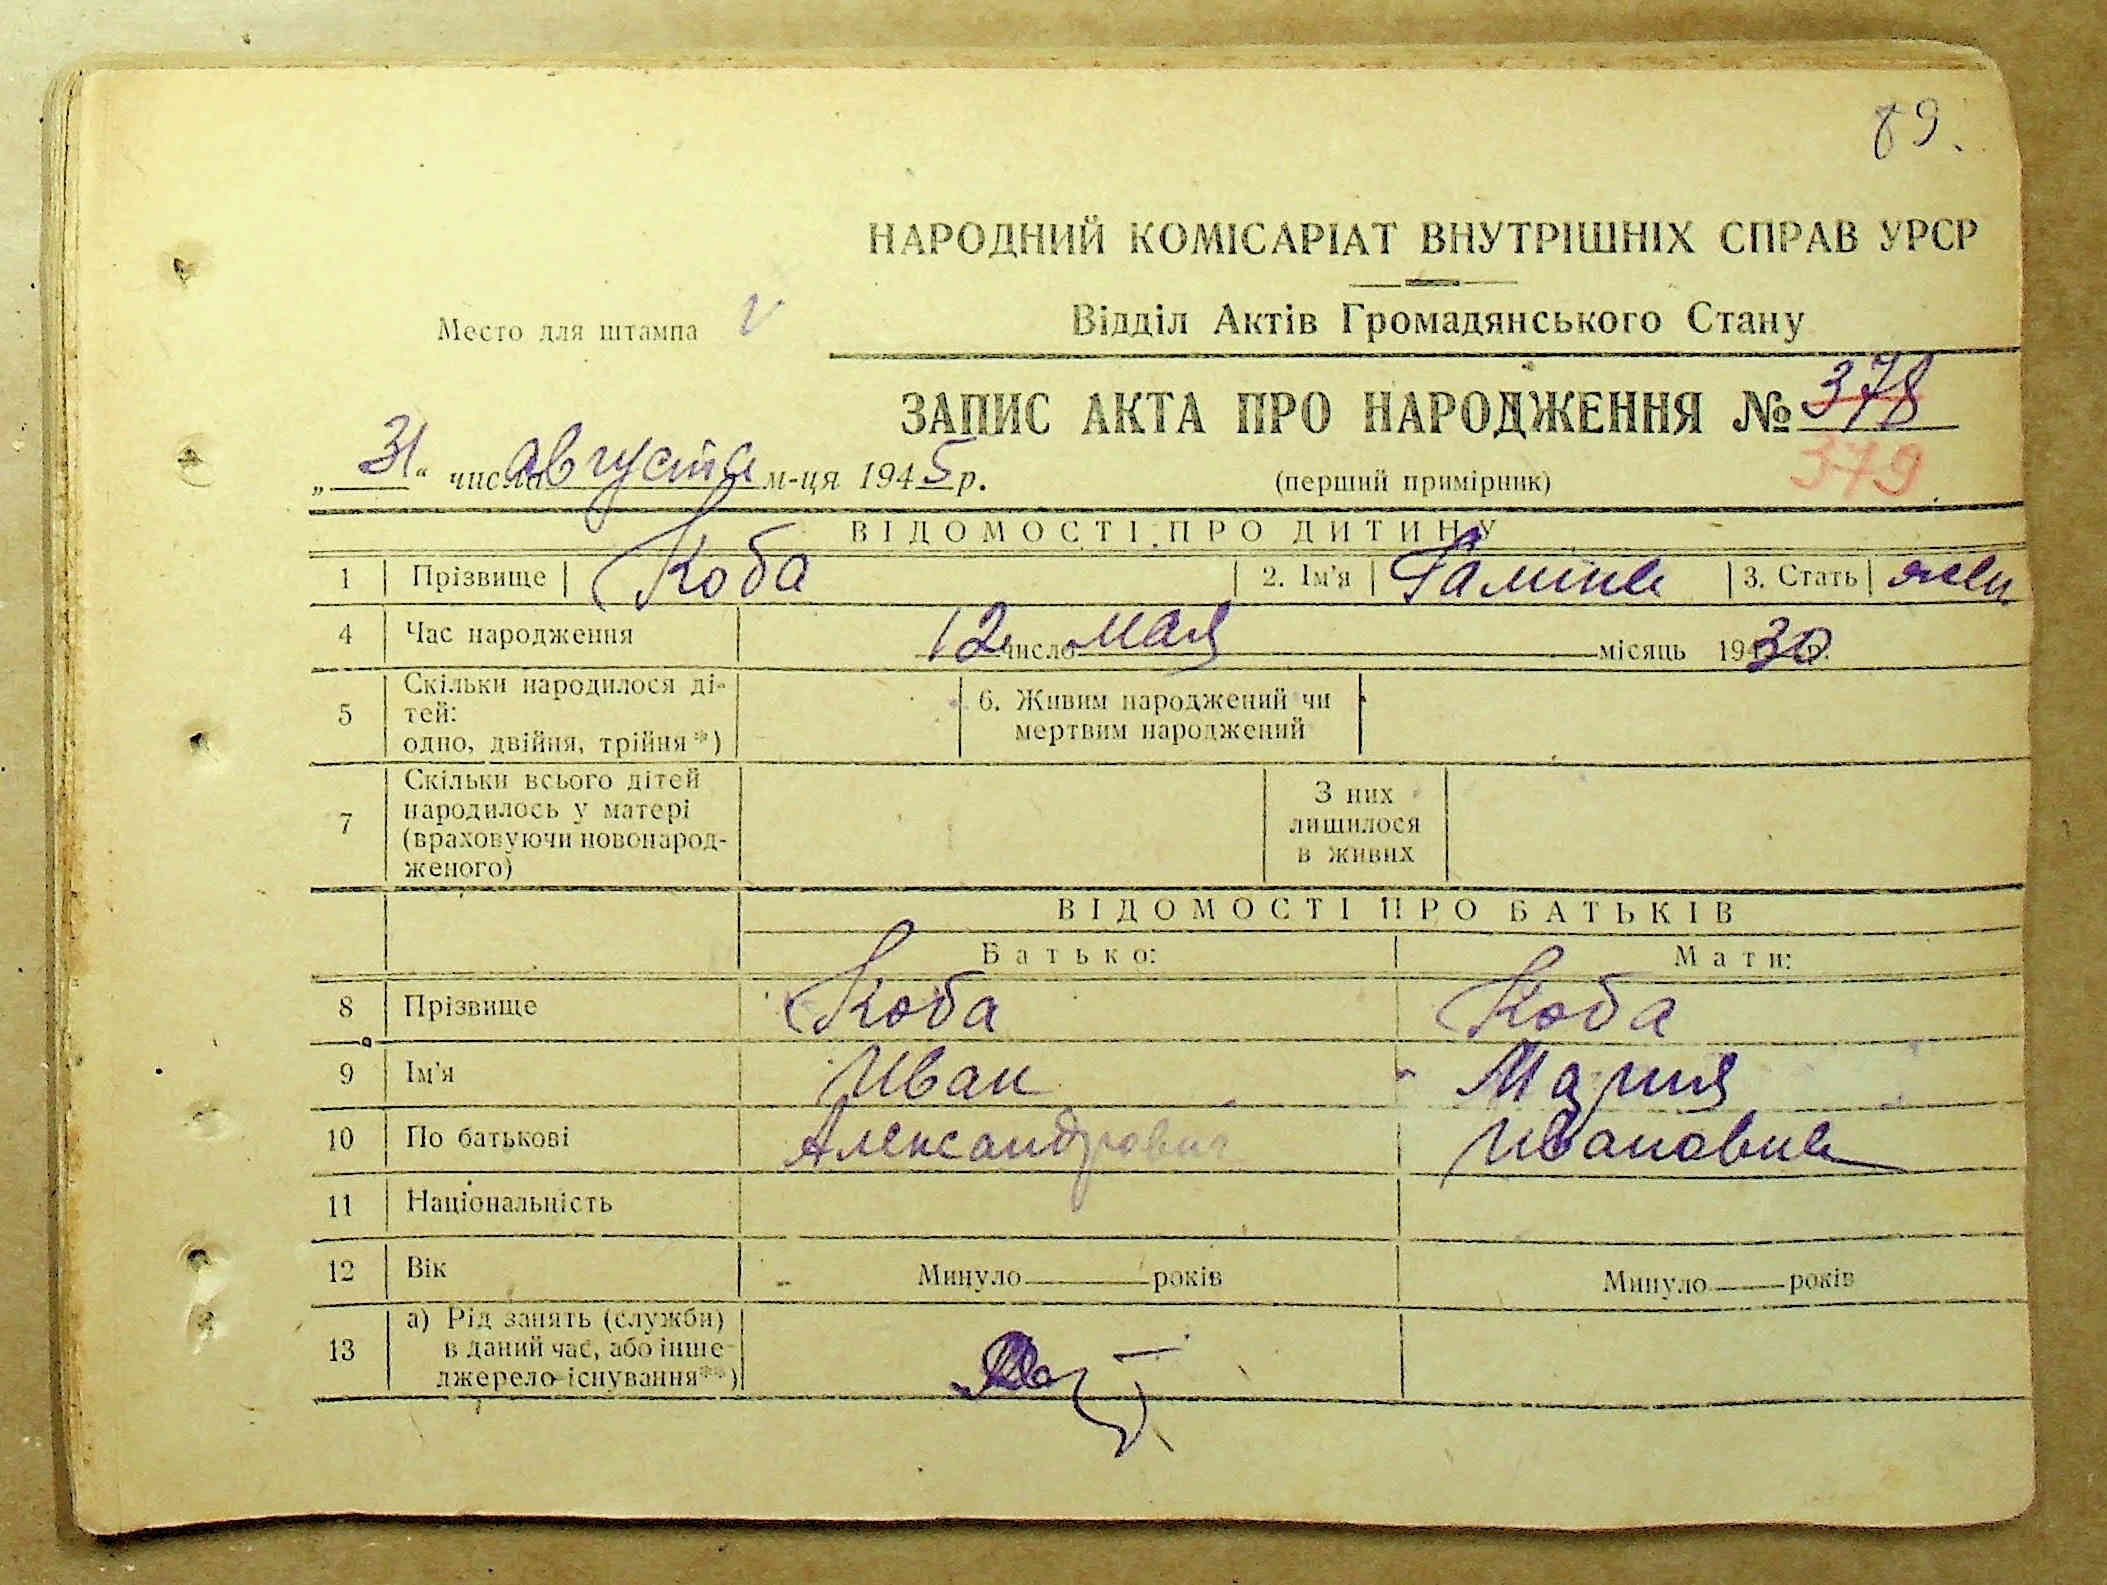 89.
НАРОДНИЙ КОМІСАРІАТ ВНУТРІШНІХ СПРАВ УРСР
Место для штампа V
Відділ Актів Громадянського Стану
ЗАПИС АКТА ПРО НАРОДЖЕННЯ № 378
„31“ числа августа м-ця 1945 р. (перший примірник) 379
ВІДОМОСТІ ПРО ДИТИНУ
1 Прізвище Коба 2. Ім'я Галина 3. Стать жен
4 Час народження 12 число мая місяць 1930 р.
5 Скільки народилося ді-
тей:
одно, двійня, трійня*) 6. Живим народжений чи
мертвим народжений
7 Скільки всього дітей
народилось у матері
(враховуючи новонарод-
женого) З них
лишилося
в живих
ВІДОМОСТІ ПРО БАТЬКІВ
Батько: Мати:
8 Прізвище Коба Коба
9 Ім'я Иван Мария
10 По батькові Александрович Ивановна
11 Національність
12 Вік Минуло років Минуло років
13 а) Рід занять (служби)
в даний час, або інше
джерело існування**)